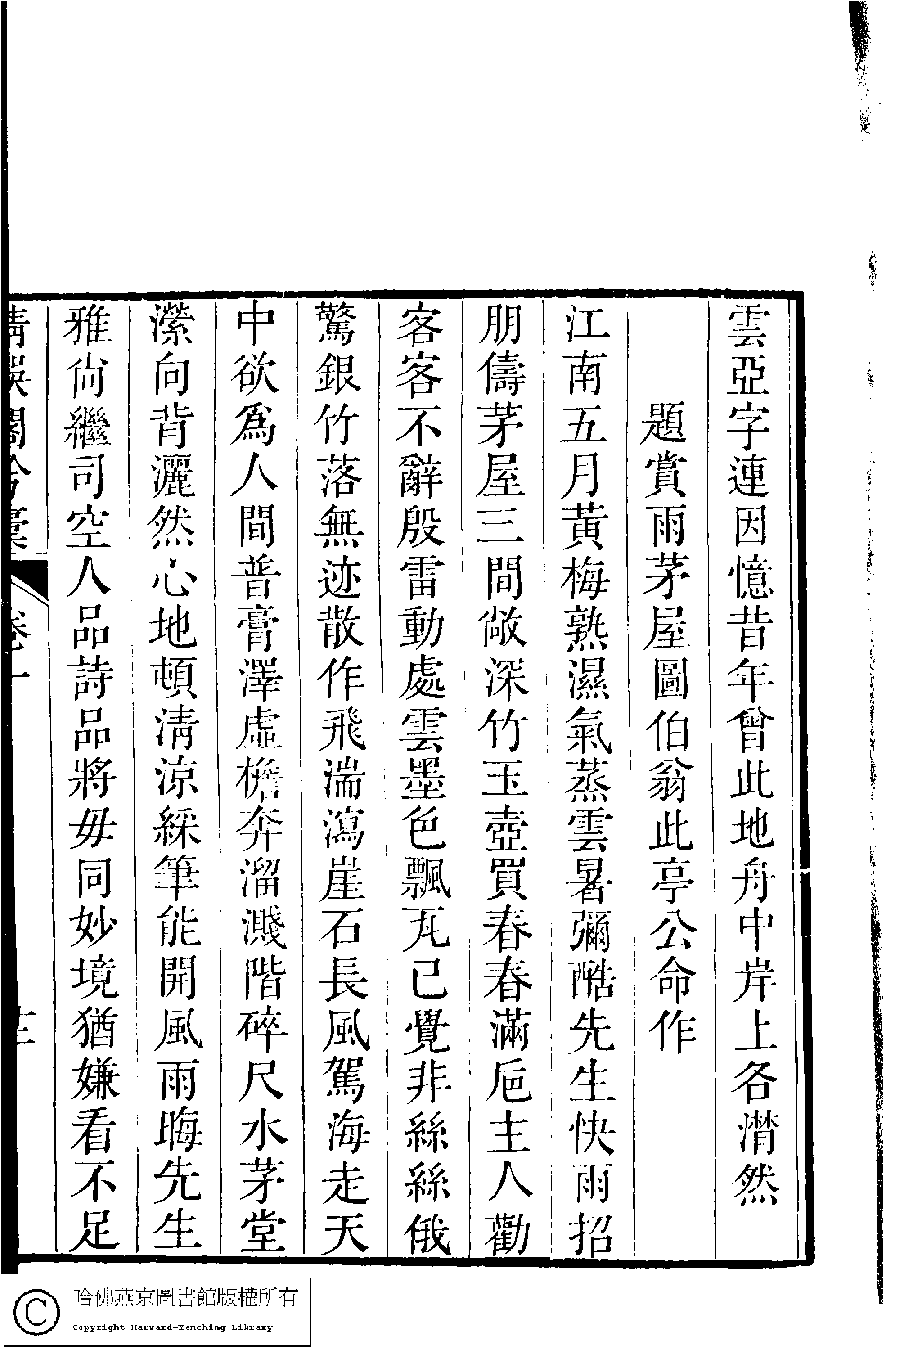 雲亞字連因憶昔年曾此地舟中岸上各潸然
題賞雨茅屋圖伯翁此亭公命作
江南五月黃梅熟濕氣蒸雲暑彌酷先生快雨招
朋儔茅屋三間敞深竹玉壺買春春滿巵主人勸
客客不辭殷雷動處雲墨色飄瓦已覺非絲絲俄
驚銀竹落無迹散作飛湍瀉崖石長風駕海走天
中欲爲人間普膏澤虛檐奔溜濺階碎尺水茅堂
瀠向背灑然心地頓淸涼綵筆能開風雨晦先生
雅尙繼司空人品詩品將毋同妙境猶嫌看不足
淸娛閣吟藁
卷一
哈佛燕京圖書館版權所有
Copyright Harvard-Yenching Library